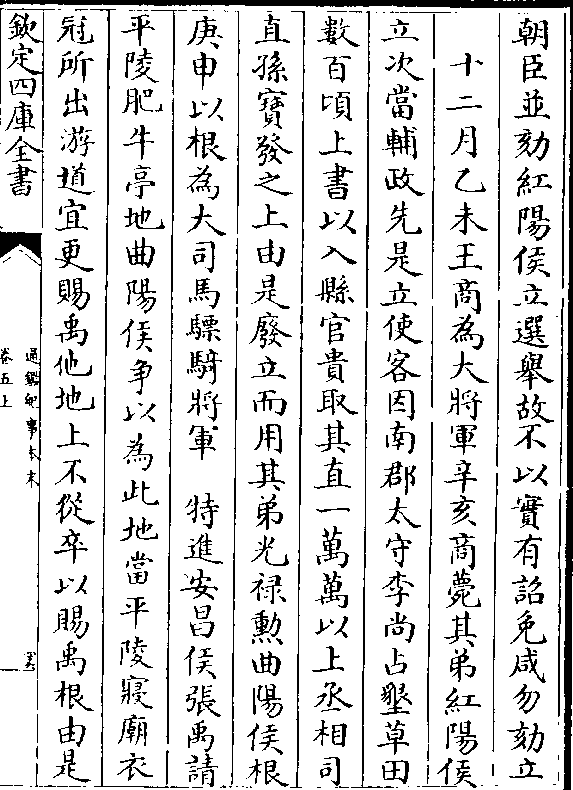 朝臣並劾紅陽侯立選舉故不以實有詔免咸勿劾立
十二月乙未王商為大將軍辛亥商薨其弟紅陽侯
立次當輔政先是立使客因南郡太守李尚占墾草田
數百頃上書以入縣官貴取其直一萬萬以上丞相司
直孫寶發之上由是廢立而用其弟光禄勲曲陽侯根
庚申以根為大司馬驃騎將軍　特進安昌侯張禹請
平陵肥牛亭地曲陽侯爭以為此地當平陵寢廟衣
冠所出游道宜更賜禹他地上不從卒以賜禹根由是
欽定四庫全書
通鑑紀事本末
卷五上